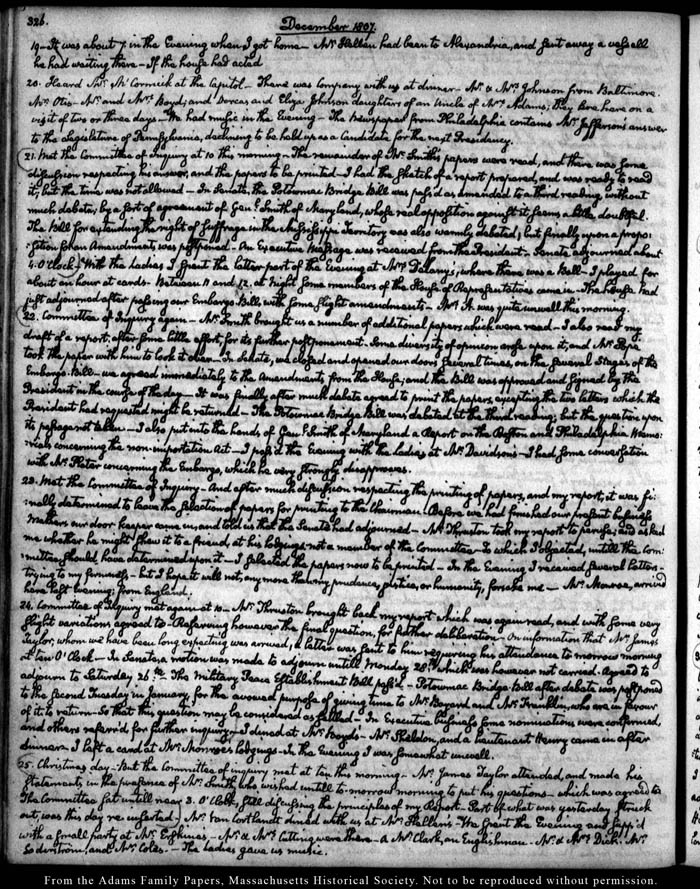 326.
December 1807.
19- It was about 7 in the Evening when I got home— Mr: Hellen had been to Alexandria, and sent away a vessell
he had waiting there— If the house had acted
20. Heard Mr: McCormick at the Capitol— There was Company with us at dinner— Mr: & Mrs: Johnson from Baltimore.
Mr: Otis— Mr: and Mrs: Boyd; and Dorcas and Eliza Johnson daughters of an Uncle of Mrs: Adams; they are here on a
visit of two or three days— We had music in the Evening— The Newspaper from Philadelphia contains Mr: Jefferson's answer
to the Legislature of Pennsylvania, declining to be held up as a Candidate for the next Presidency.
21. Met the Committee of Inquiry at 10 this morning— The remainder of Mr: Smith's papers were read, and there was some
discussion respecting his answer, and the papers to be printed— I had the sketch of a report prepared, and was ready to read
it, but the time was not allowed— In Senate, the Potowmac Bridge Bill was pass'd as amended to a third reading without
much debate; by a sort of agreement of Genl: Smith of Maryland, whose real opposition against it, seems a little doubtful.
The Bill for extending the right of suffrage in the Mississippi Territory was also warmly debated, but finally upon a propo-
sition for an Amendment was postponed— An Executive Message was received from the President— Senate adjourned about
4. O'Clock— With the Ladies I spent the latter part of the Evening at Mrs: Delany's, where there was a Ball— I played for
about an hour at cards— Between 11 and 12. at Night some members of the House of Representatives came in— The House had
just adjourned after passing our Embargo Bill, with some slight amendments— Mrs: A. was quite unwell this morning.
22. Committee of Inquiry again— Mr: Smith brought us a number of additional papers which were read— I also read my
draft of a report; after some little effort, for its further postponement. Some diversity of opinion arose upon it, and Mr: Pope
took the paper with him to look it over— In Senate, we closed and opened our doors several times, on the several stages of the
Embargo Bill— we agreed immediately to the Amendments from the House; and the Bill was approved and signed by the
President in the course of the day— It was finally after much debate agreed to print the papers, excepting the two letters which the
President had requested might be returned— The Potowmac Bridge Bill was debated at the third reading; but the question upon
its passage not taken— I also put into the hands of Genl: Smith of Maryland a Report on the Boston and Philadelphia Memo-
rials concerning the non-importation Act— I pass'd the Evening with the Ladies at Mr: Davidson's— I had some conversation
with Mr: Slater concerning the Embargo, which he very strongly disapproves.
23. Met the Committee of Inquiry— And after much discussion respecting the printing of papers, and my report, it was fi-
nally determined to leave the selection of papers for printing to the Chairman. Before we had finished our present business
Mathers our door keeper came in, and told us that the Senate had adjourned— Mr: Thruston took my report to peruse; and asked
me whether he might shew it to a friend, at his lodgings not a member of the Committee— To which I objected, untill the Com-
mittee should have determined upon it— I selected the papers now to be printed— In the Evening I received several letters—
trying to my firmness— but I hope it will not, any more than my prudence, justice, or humanity, forsake me— Mr: Monroe, arrived
here last evening; from England.
24. Committee of Inquiry met again at 10— Mr: Thruston brought back my report which was again read, and with some very
slight variations agreed to— Reserving however the final question, for further deliberation— On information that Mr: James
Taylor, whom we have been long expecting was arrived, a letter was sent to him requiring his attendance to morrow morning
at ten O'Clock— In Senate, a motion was made to adjourn untill Monday 28th: which was however not carried. Agreed to
adjourn to Saturday 26th: The Military Peace Establishment Bill pass'd— Potowmac Bridge Bill after debate was postponed
to the second Tuesday in January, for the avowed purpose of giving time to Mr: Bayard and Mr: Franklin, who are in favour
of it to return— So that this question may be considered as settled— In Executive business some nominations were confirmed,
and others referr'd for further inquiry— I dined at Mr: Boyd's— Mr: Sheldon, and a Lieutenant Henry came in after
dinner— I left a card at Mr: Monroe's lodgings— In the Evening I was somewhat unwell.
25. Christmas day— But the Committee of inquiry met at ten this morning— Mr: James Taylor attended, and made his
statements in the presence of Mr: Smith who wished untill to-morrow morning to put his questions— which was agreed to
The Committee sat untill near 3. O'Clock, still discussing the principles of my Report— Part of what was yesterday struck
out, was this day re-inserted— Mr: Van Cortlandt dined with us at Mr: Hellen's— We spent the Evening and supp'd
with a small party at Mr: Erskine's— Mr: & Mrs: Cutting were there— a Mr: Clark, an Englishman— Mr: & Mrs: Dick— Mr:
Soderstrom, and Mr: Coles— The Ladies gave us music.
From the Adams Family Papers, Massachusetts Historical Society. Not to be reproduced without permission.